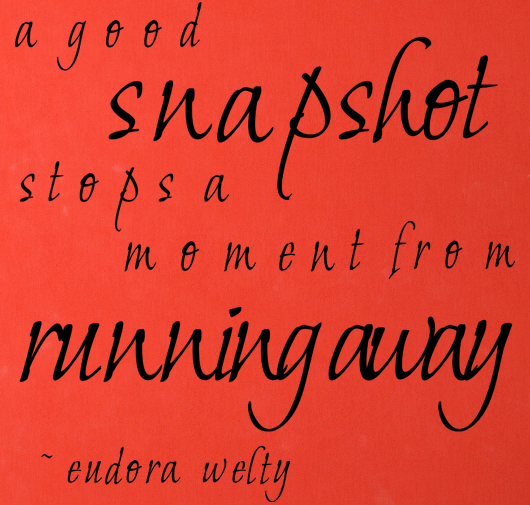 a good
snapshot
stops a
moment from
running away
~ eudora welty